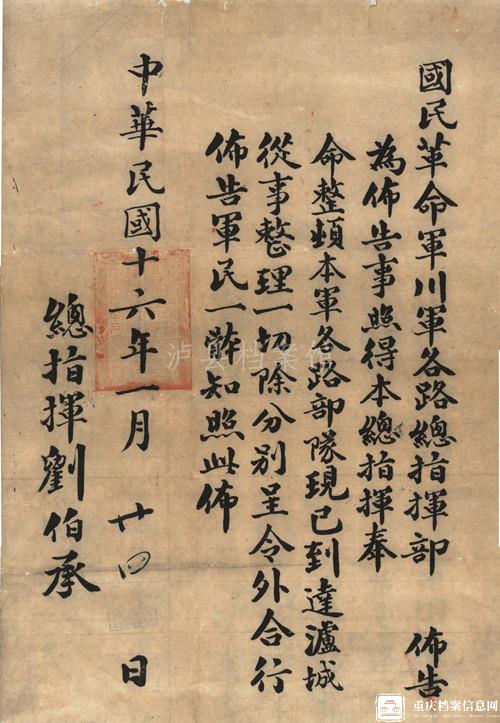 國民革命軍川軍各路總指揮部 佈告
為佈告事照得本總指揮奉
命整頓本軍各路部隊現已到達瀘城
從事整理一切除分別呈令外合行
佈告軍民一體知照此佈
中華民國十六年一月廿四日
總指揮劉伯承
泸县档案馆
重庆档案信息网